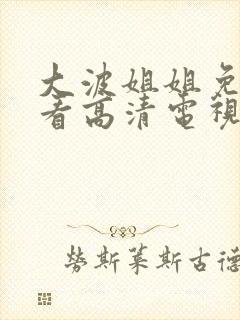 大波姐姐免
看高清電視
勞斯萊斯古德